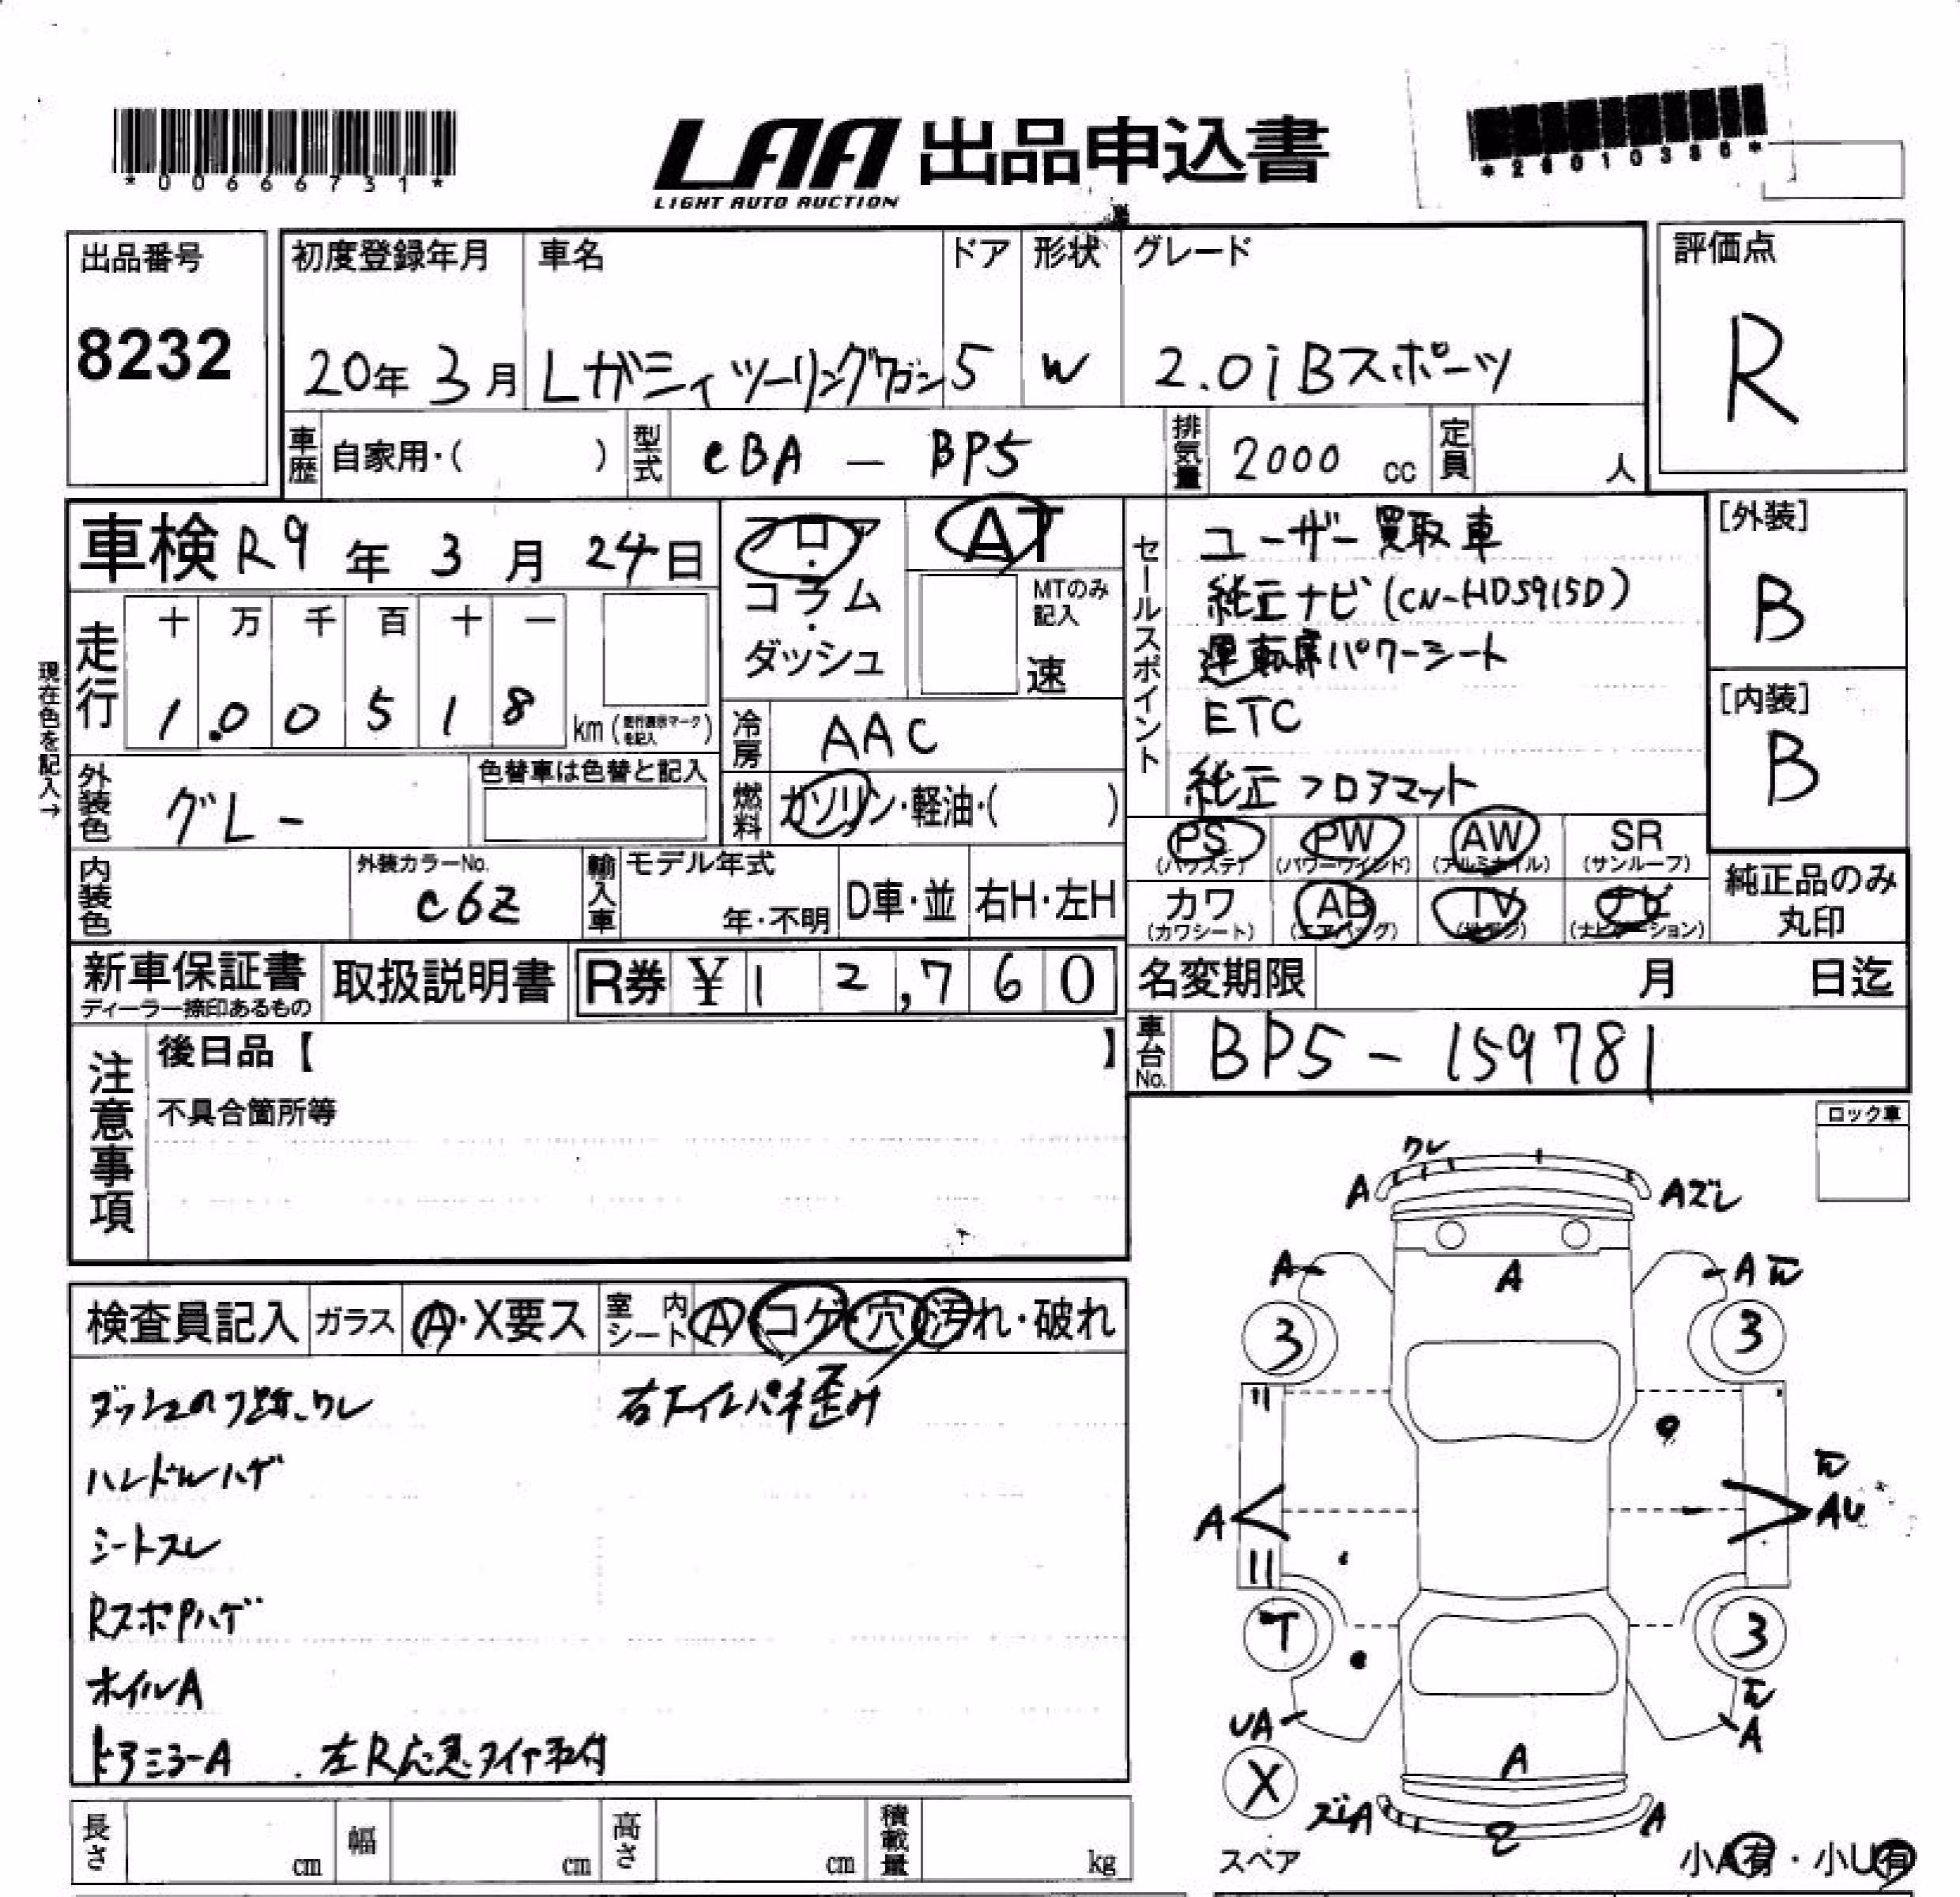 *00666731*
LAA 出品申込書
LIGHT AUTO AUCTION
出品番号
8232
初度登録年月
20年 3月
車名
Lガシィツーリングワゴン
ドア
5
形状
W
グレード
2.0i Bスポーツ
評価点
R
車歴 自家用・( )
型式 eBA - BP5
排気量 2000 cc
定員 人
車検 R9年 3月 24日
フロア・コラム・ダッシュ
AT
MTのみ記入
速
セールスポイント
ユーザー買取車
純正ナビ(CN-HDS915D)
運転席パワーシート
ETC
純正フロアマット
[外装]
B
[内装]
B
現在色を記入→
走行
十 万 千 百 十 一
1.00518 km
冷房 AAC
外装色 グレー
色替車は色替と記入
燃料 ガソリン・軽油・( )
PS (パワステ)
PW (パワーウィンド)
AW (アルミホイル)
SR (サンルーフ)
カワ (カワシート)
AB (エアバッグ)
TV
ナビ (ナビゲーション)
純正品のみ丸印
内装色
外装カラーNo.
C6Z
輸入車
モデル年式
年・不明
D車・並
右H・左H
新車保証書
ディーラー捺印あるもの
取扱説明書
R券 ¥12,760
名変期限 月 日迄
車台No. BP5-159781
注意事項
後日品【 】
不具合箇所等
ロック車
検査員記入
ガラス A・X要ス
室内シート A・コゲ・穴・汚れ・破れ
右ドイルパネ歪み
ハンドルハゲ
シートスレ
RスポPハゲ
ホイルA
ドアミラーA
左R応急タイヤ取付
ワレ
A
Aズレ
A
A
A
3
3
A
AU
T
3
UA
A
A
X
ズレA
A
スペア
小A有・小U有
長さ cm
幅 cm
高さ cm
積載量 kg